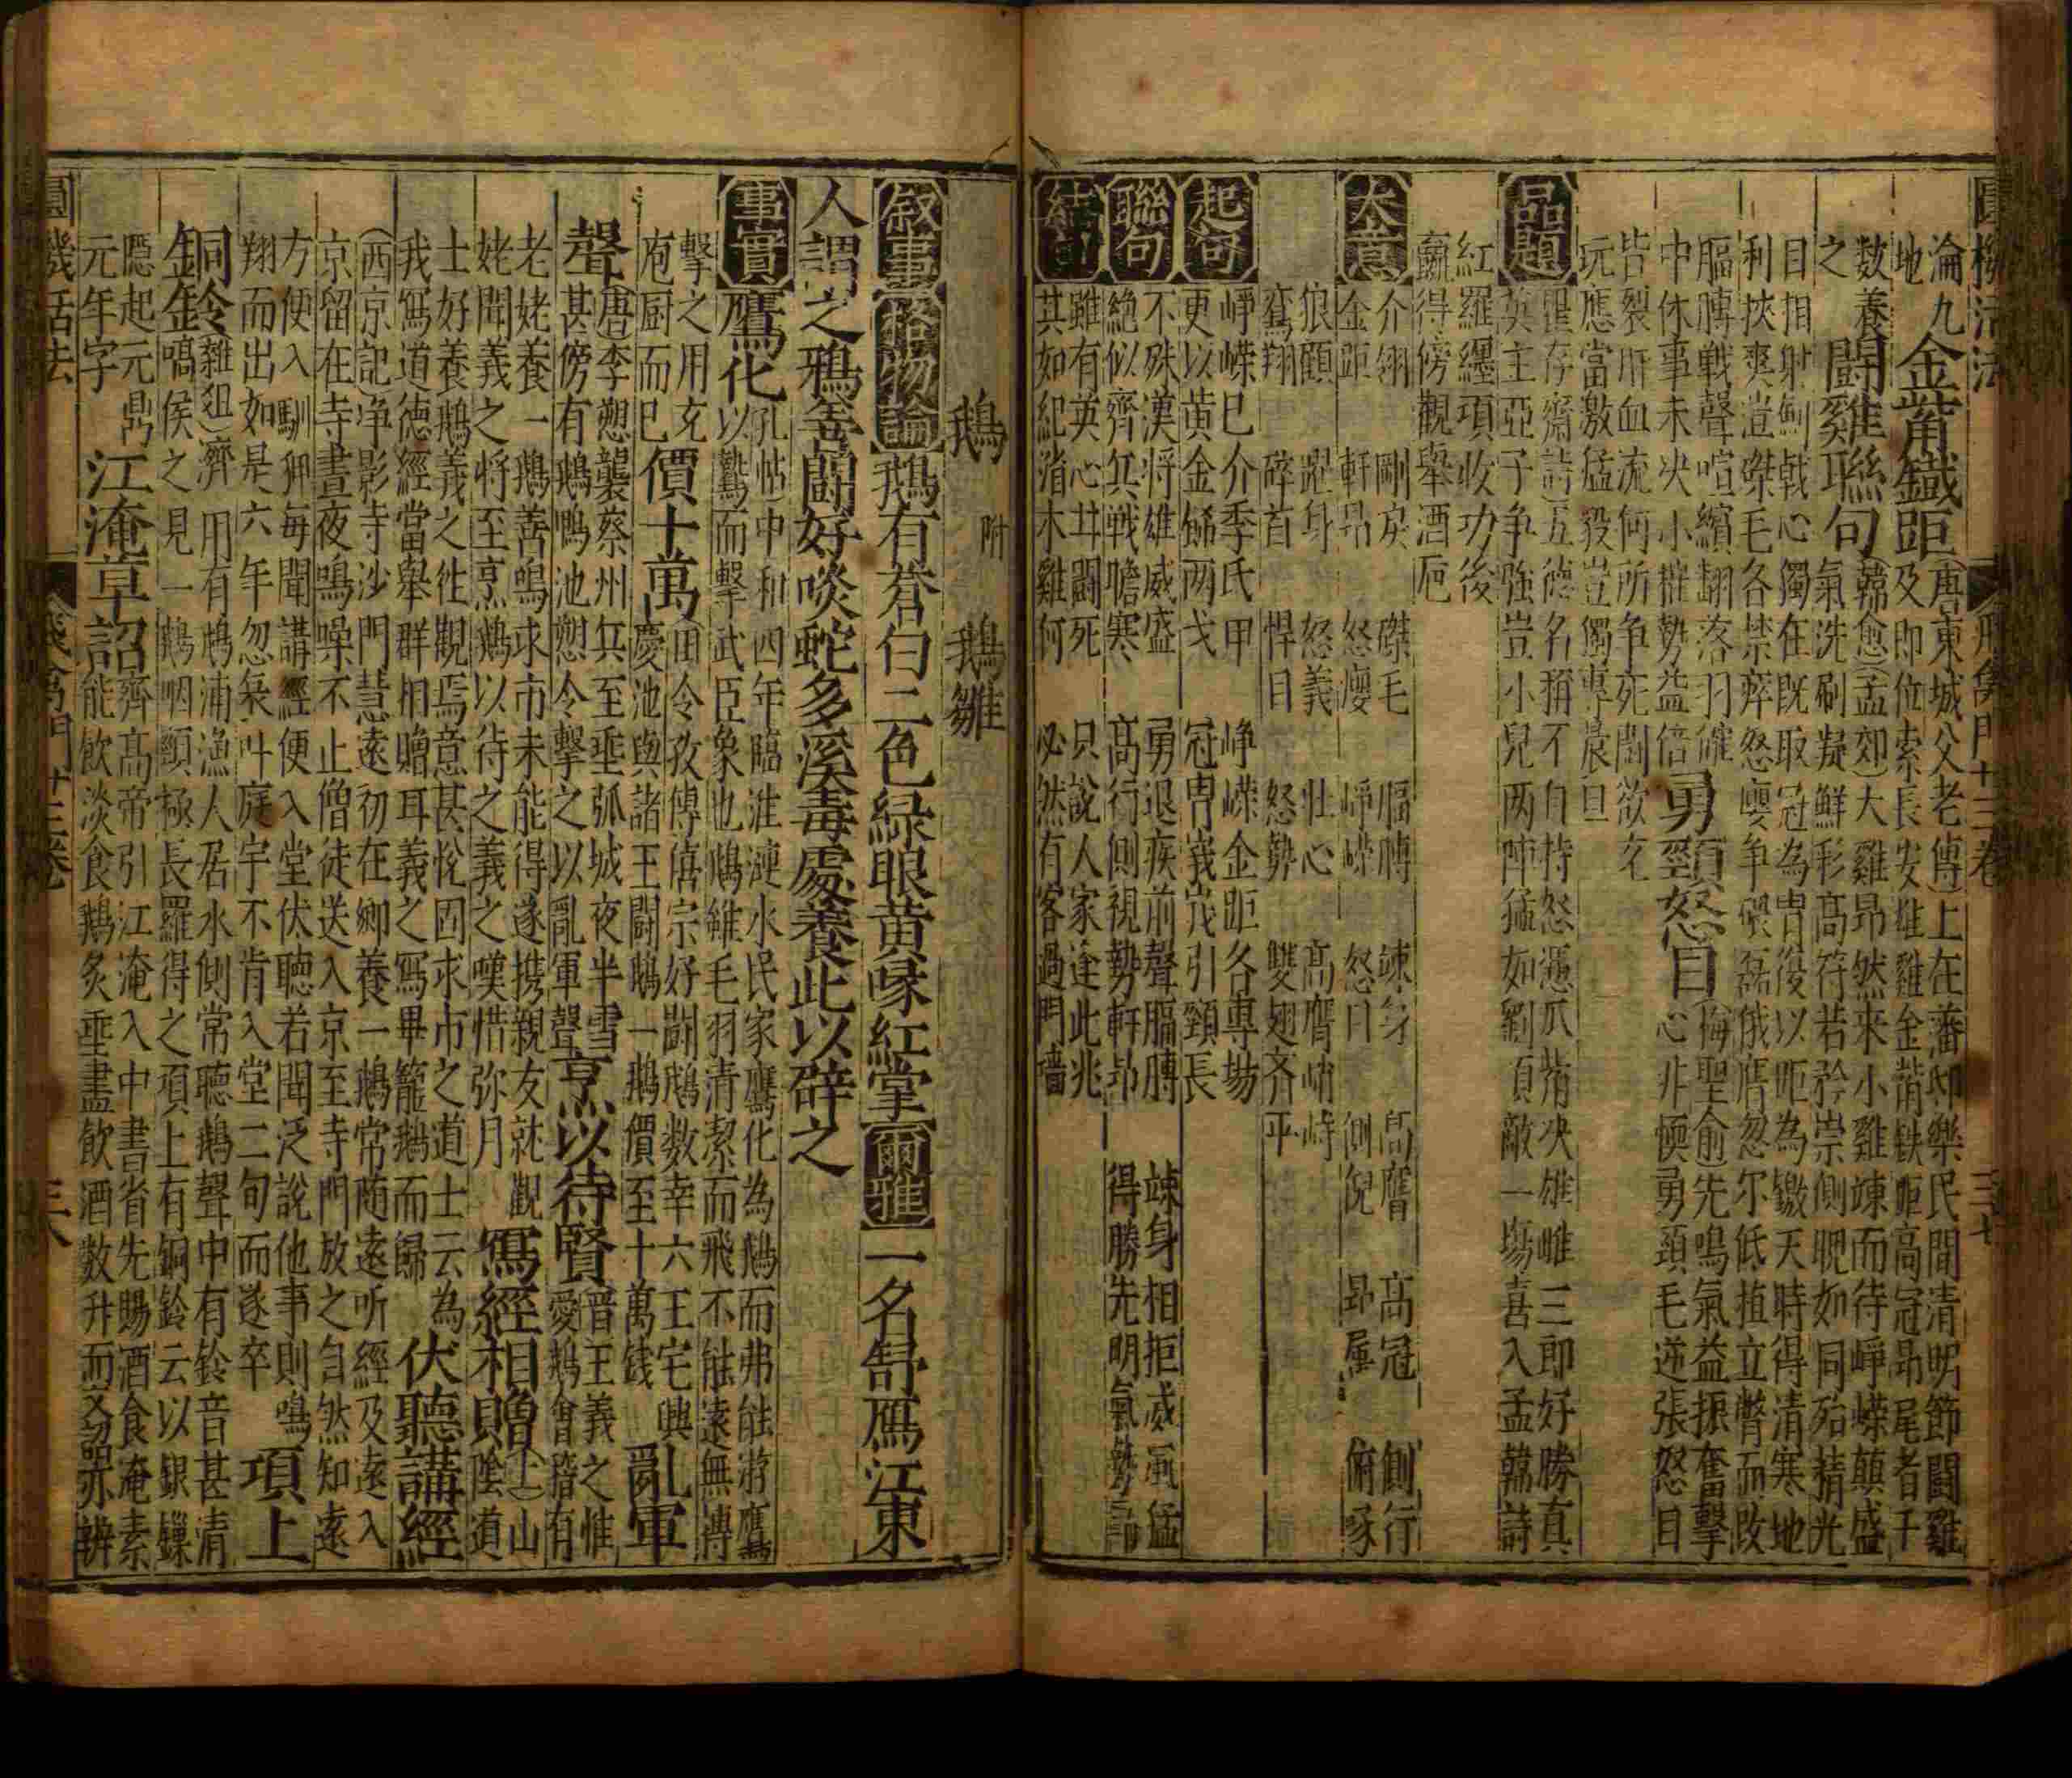 圓機活法 飛禽門十三卷 三十七
淪九
地
金菷鐵距
唐東城父老傳上在藩邸樂民間清明節鬪雞
及即位索長安雄雞金菷鉄距高冠昻尾者千
数養
之
鬪雞聯句
韓愈孟郊大雞昻然来小雞竦而待崢嶸顛盛
氣洗刷凝鮮彩高符若矜崇側睨如同殆精光
目相射劍戟心獨在既取冠為冑復以距為鐓天時得清寒地
利挾爽塏磔毛各禁痒怒癭争碨磊俄膺忽尔低植立瞥而改
膈膊戰聲喧繽翻落羽皠
中休事未决小挫勢益倍
勇頸怒目
梅聖俞先鳴氣益振奮擊
心非愞勇頸毛逆張怒目
皆裂肝血流何所争死鬪欲充
玩應當激猛毅豈獨専晨旦
品題
瞿存齋詩五德名稱不自持怒憑爪觜决雄雌三郎好勝真
英主亞子争強豈小兒两陣猛如劉項敵一場喜入孟韓詩
紅羅纒項收功後
贏得傍觀舉酒卮
大意
介翎 剛戾 磔毛 膈膊 竦身 高膺 高冠 側行
金距 軒昻 怒癭 崢嶸 怒目 側倪 昻尾 俯啄
狼顧 䠂身 怒義 壮心 高膺峭峙
鶱翔 碎首 悍目 怒勢 雙翅齐平
起句
崢嶸已介季氏甲 崢嶸金距各専場
更以黄金銻两戈 冠冑峩峩引頸長
聯句
不殊漢将雄威盛 勇退疾前聲膈膊 竦身相拒威風猛
絶似齊兵戦瞻寒 高行側視勢軒昻 得勝先明氣勢高
結句
雖有英心甘闘死 只說人家逢此兆
其如紀渻木雞何 必然有客過門墻
鵝 附 鵝雛
叙事 格物論 鵝有蒼白二色緑眼黄喙紅掌 爾雅 一名舒鴈江東
人謂之鴉善闘好啖蛇多溪毒處養此以辟之
事實
鷹化
孔帖中和四年臨淮漣水民家鷹化為鵝而弗能游鷹
以鷙而擊武臣象也鵝雖毛羽清潔而飛不能遠無搏
擊之用充
庖厨而已
價十萬
田令孜傳僖宗好鬪鵝数幸六王宅興
慶池與諸王闘鵝一鵝價至十萬銭
亂軍
聲
唐李愬襲蔡州兵至垂弧城夜半雪
甚傍有鵝鴨池愬令擊之以亂軍聲
烹以待賢
晋王義之惟
愛鵝會稽有
老姥養一鵝善鳴求市未能得遂携親友就觀
姥聞義之将至烹鵝以待之義之嘆惜弥月
寫經相贈
上山
陰道
士好養鵝義之徃觀焉意甚恱固求市之道士云為
我寫道德經當舉群相贈耳義之寫畢籠鵝而歸
伏聽講經
西京記净影寺沙門慧遠初在鄉養一鵝常随遠听經及遠入
京留在寺晝夜鳴噪不止僧徒送入京至寺門放之自然知遠
方便入馴狎毎聞講經便入堂伏聴若聞泛說他事則鳴
翔而出如是六年忽氣叫庭宇不肯入堂二旬而遂卒
項上
銅鈴
雜俎濟用有鵝浦漁人居水側常聴鵝聲中有鈴音甚清
金金嗃侯之見一鵝咽頸極長羅得之項上有銅鈴云以銀鏁
隠起元鼎
元年字
江淹草詔
齊高帝引江淹入中書省先賜酒食淹素
能飲淡食鵝炙垂盡飲酒数升而文詔亦辨
圓機活法 飛禽門十三卷 三十八